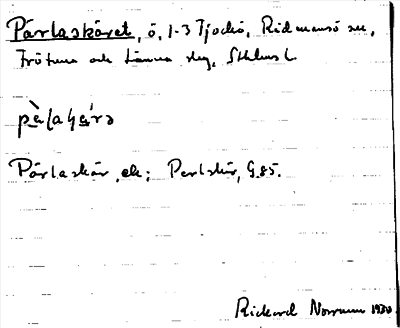 Pärlaskäret, ö, 1-3 Tjockö, Rådmansö sn,
Frötuna och Länna slg, Sthlms l.
pè̀laʂɛ́rə
Pärlaskär, ek; Perlskär, G85.
Rickard Norman 1930.